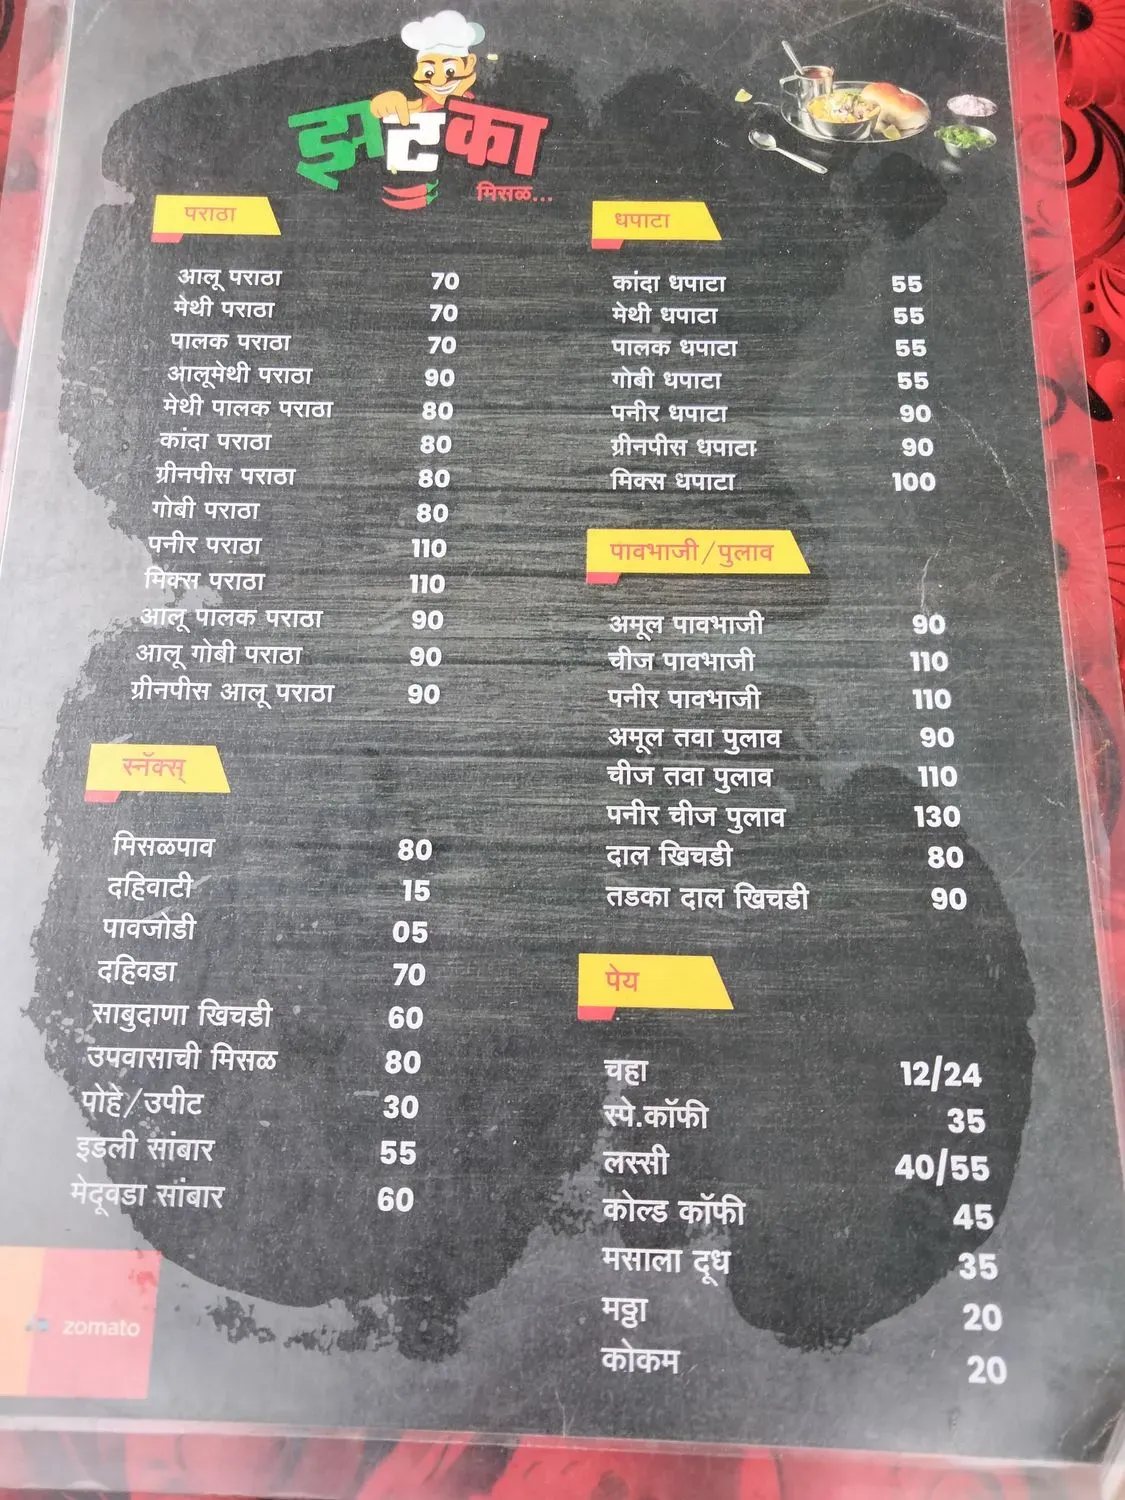 झटका
मिसळ...
पराठा
आलू पराठा 70
मेथी पराठा 70
पालक पराठा 70
आलूमेथी पराठा 90
मेथी पालक पराठा 80
कांदा पराठा 80
ग्रीनपीस पराठा 80
गोबी पराठा 80
पनीर पराठा 110
मिक्स पराठा 110
आलू पालक पराठा 90
आलू गोबी पराठा 90
ग्रीनपीस आलू पराठा 90
स्नॅक्स्
मिसळपाव 80
दहिवाटी 15
पावजोडी 05
दहिवडा 70
साबुदाणा खिचडी 60
उपवासाची मिसळ 80
पोहे/उपीट 30
इडली सांबार 55
मेदूवडा सांबार 60
zomato
धपाटा
कांदा धपाटा 55
मेथी धपाटा 55
पालक धपाटा 55
गोबी धपाटा 55
पनीर धपाटा 90
ग्रीनपीस धपाटा 90
मिक्स धपाटा 100
पावभाजी/पुलाव
अमूल पावभाजी 90
चीज पावभाजी 110
पनीर पावभाजी 110
अमूल तवा पुलाव 90
चीज तवा पुलाव 110
पनीर चीज पुलाव 130
दाल खिचडी 80
तडका दाल खिचडी 90
पेय
चहा 12/24
स्पे.कॉफी 35
लस्सी 40/55
कोल्ड कॉफी 45
मसाला दूध 35
मठ्ठा 20
कोकम 20